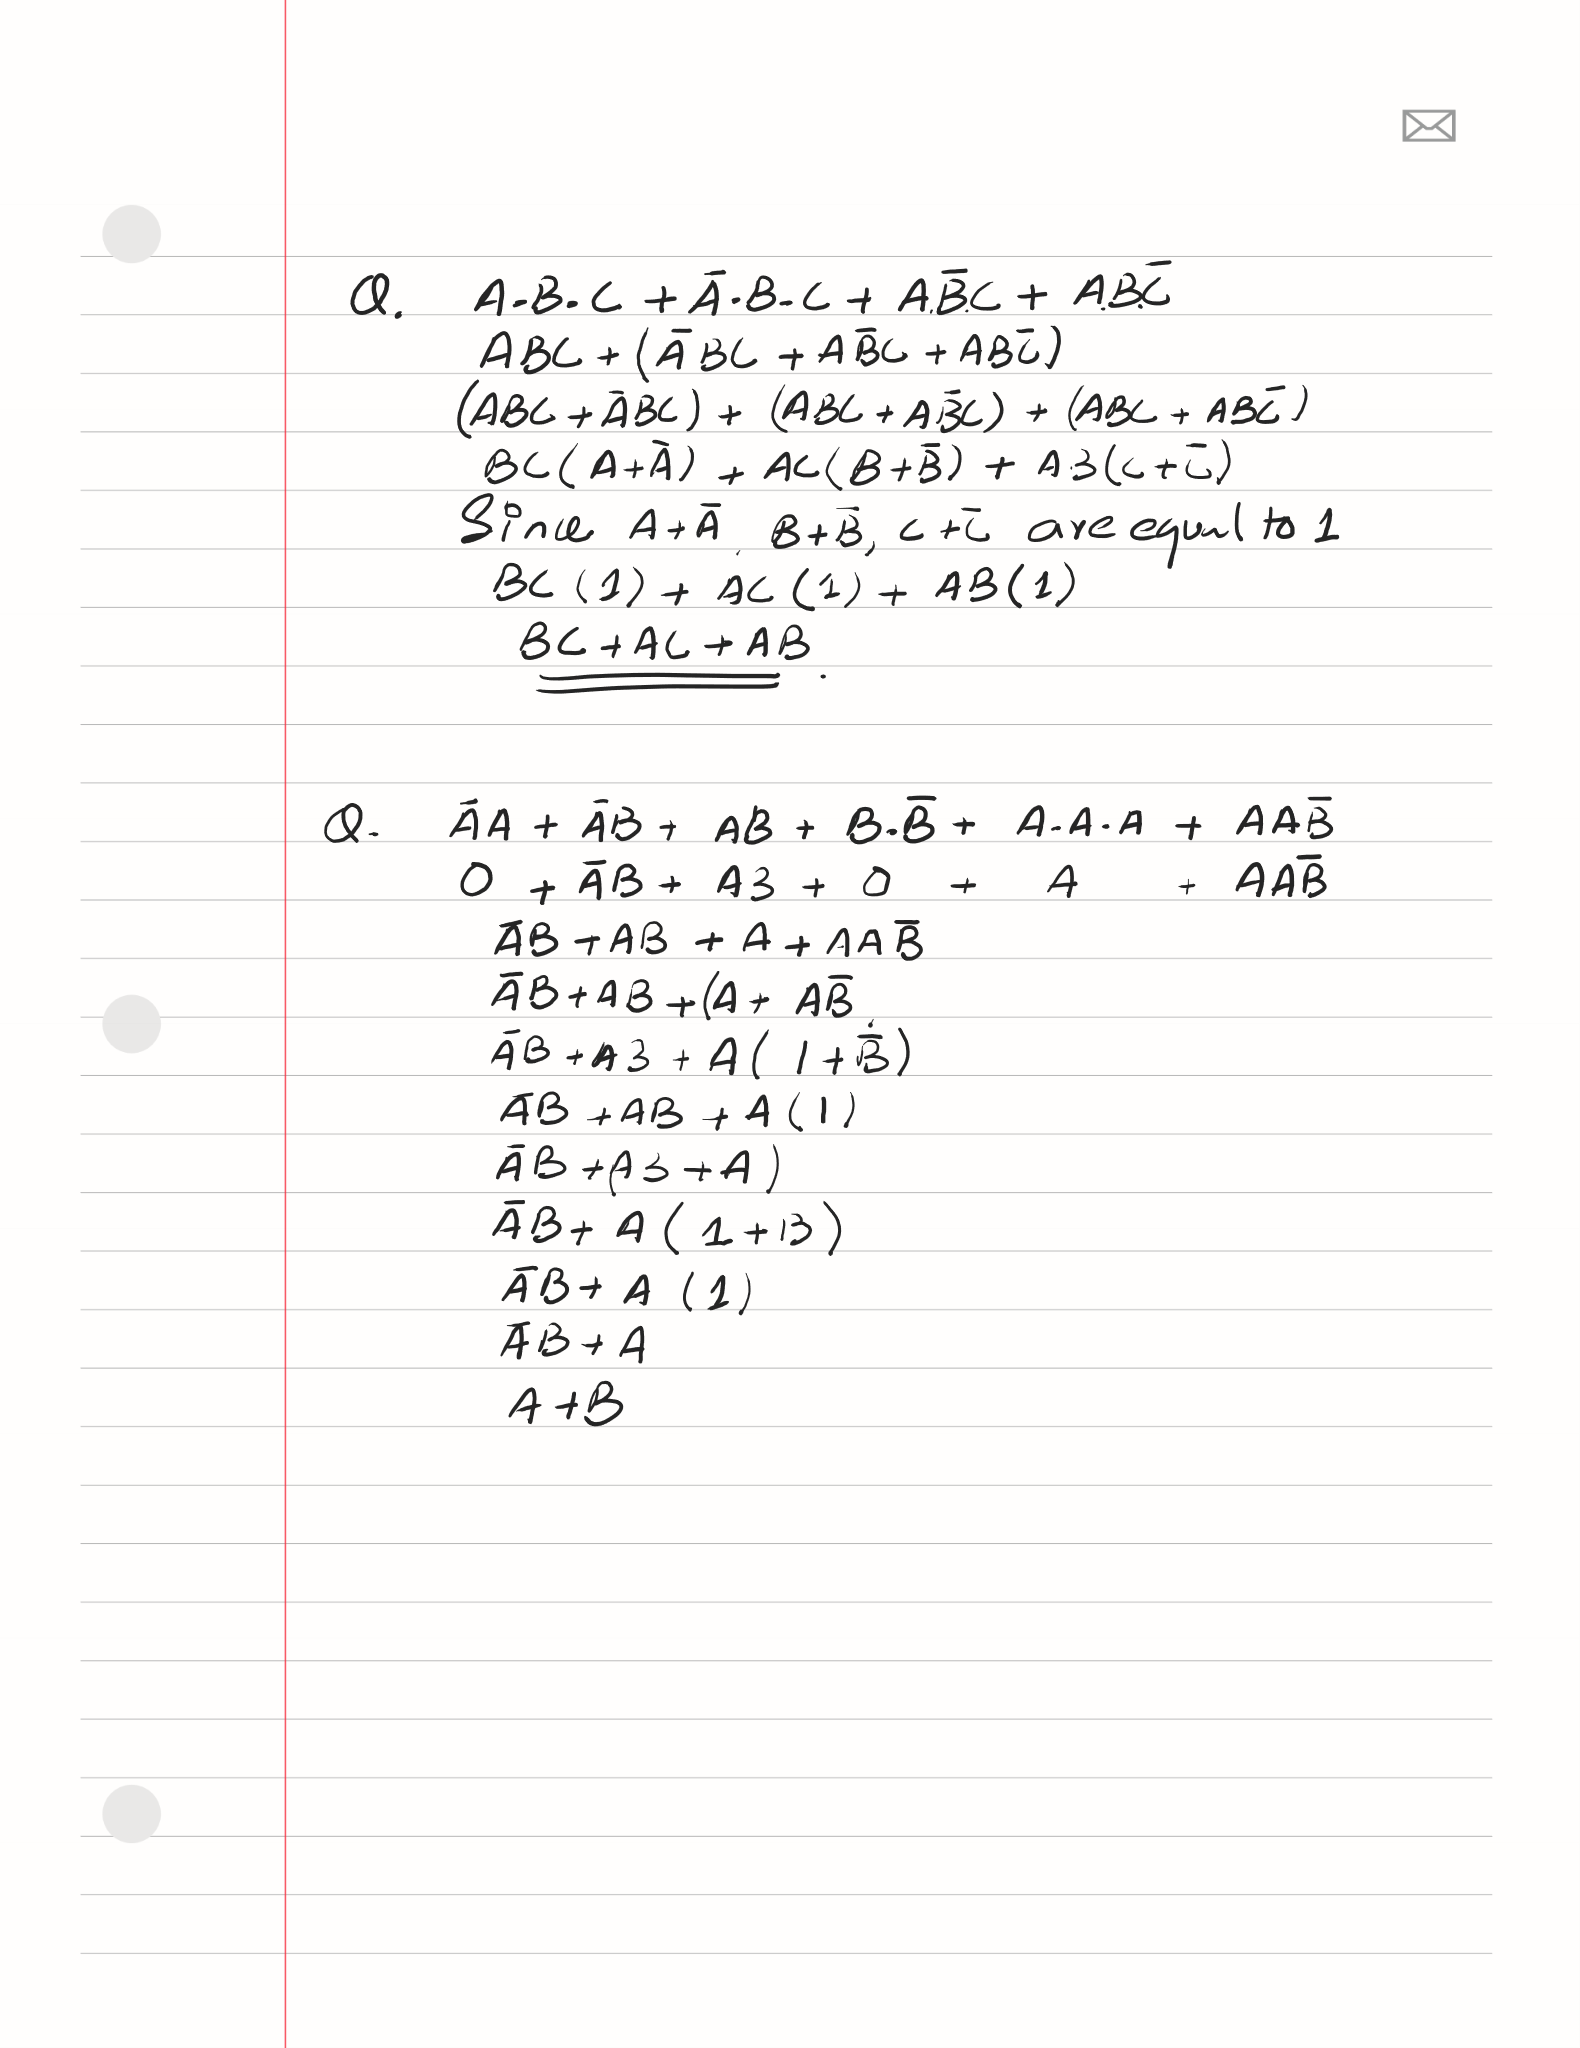 Q. A·B·C + Ā·B·C + A.B̄.C + A.B.C̄
ABC + (ĀBC + AB̄C + ABC̄)
(ABC + ĀBC) + (ABC + AB̄C) + (ABC + ABC̄)
BC(A+Ā) + AC(B+B̄) + AB(C+C̄)
Since A+Ā, B+B̄, C+C̄ are equal to 1
BC(1) + AC(1) + AB(1)
BC + AC + AB.
Q. ĀA + ĀB + AB + B.B̄ + A·A·A + AAB̄
0 + ĀB + AB + 0 + A + AAB̄
ĀB + AB + A + AAB̄
ĀB + AB + (A + AB̄
ĀB + AB + A(1+B̄)
ĀB + AB + A(1)
ĀB + (AB + A)
ĀB + A(1+B)
ĀB + A(1)
ĀB + A
A + B